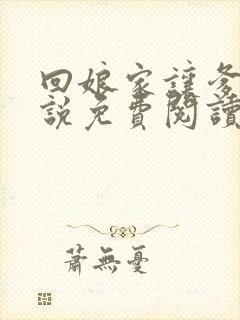 回娘家讓爹
說免費閱讀
蕭無憂